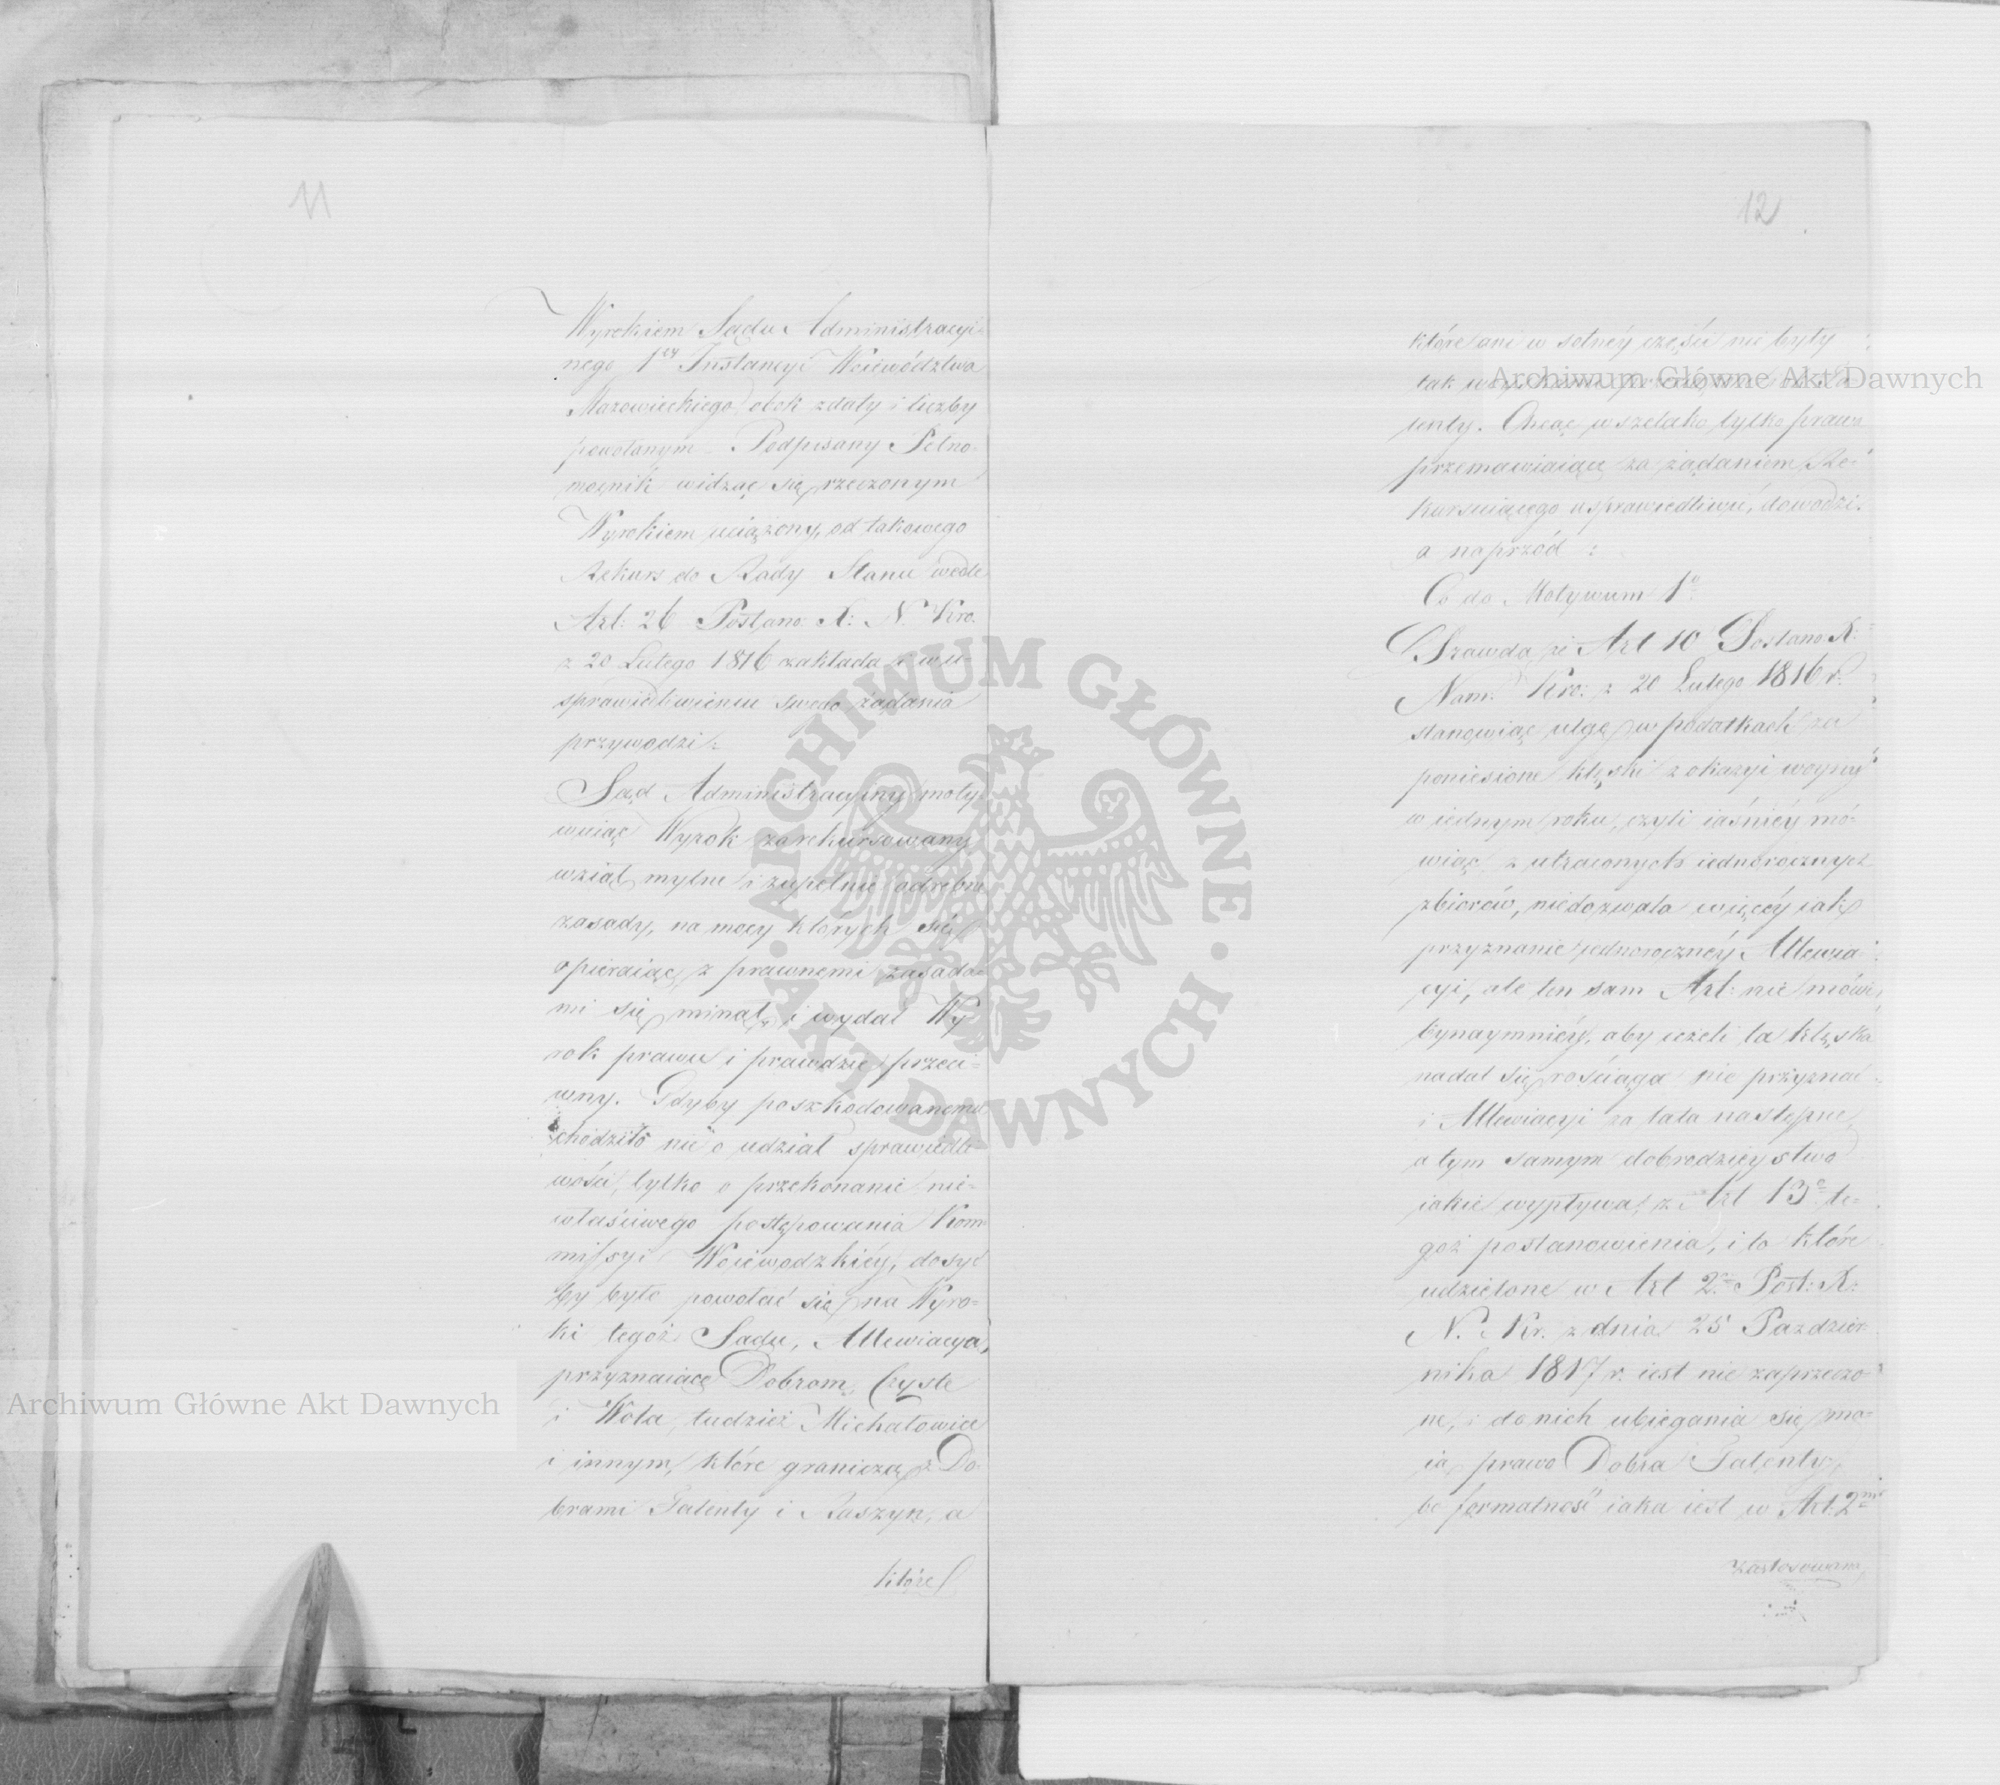 11
Wyrokiem Sądu Administracyi-
nego 1ey Instancyi Województwa
Mazowieckiego obok z daty i liczby
powołanym. Podpisany Pełno-
mocnik widząc się rzeczonym
Wyrokiem uciążony, od takowego
Rekurs do Rady Stanu wedle
Art: 26 Postano: X: N. Kró.
z 20 Lutego 1816 zakłada i w u-
sprawiedliwieniu swego żądania
przywodzi:
Sąd Administracyjny moty-
wuiąc Wyrok zarekursowany
wziął mylne i zupełnie odrębne
zasady, na mocy których się
opieraiąc z prawnemi zasada-
mi się minął, i wydał Wy
rok prawu i prawdzie przeci-
wny. Gdyby poszkodowanemu
chodziło nie o udział sprawiedli-
wości, tylko o przekonanie nie-
właściwego postępowania Kom-
missyi Woiewódzkiéy, dosyć
by było powołać się na Wyro-
ki tegoż Sądu, Allewiacya
przyznaiące Dobrom Czyste
i Wola, tudzież Michałowice
i innym, które graniczą z Do-
brami Falenty i Raszyn, a
które
12
które ani w setnéy części nie były
tak
lenty. Chcąc wszelako tylko prawa
przemawiaiące za żądaniem Re-
kursuiącego usprawiedliwić, dowodzi.
a naprzód:
Co do Motywum 1o
Prawda że Art 10 Postano: X:
Nam: Kró: z 20 Lutego 1816 r.
stanowiąc ulgę w podatkach za
poniesione klęski z okazyi woyny
w iednym roku, czyli iaśniéy mó-
wiąc z utraconych iednorocznych
zbiorów, niedozwala więcéy iak
przyznanie iednorocznéy Allewia-
cyi, ale ten sam Art: nie mówi
bynaymniéy, aby ieżeli ta klęska
nadal się rościąga nie przyznać
i Allewiacyi za lata następne,
a tym samym dobrodzieystwo
iakie wypływa z Art 13o te-
goż postanowienia, i to które
udzielone w Art 2o Post: X:
N. Kr. z dnia 25 Paździer-
nika 1817 r. iest nie zaprzeczo-
ne, i do nich ubiegania się ma-
ią prawo Dobra Falenty,
bo formalność iaka iest w Art. 2m
zastosowana
Archiwum Główne Akt Dawnych
Archiwum Główne Akt Dawnych
ARCHIWUM GŁÓWNE · AKT DAWNYCH ·